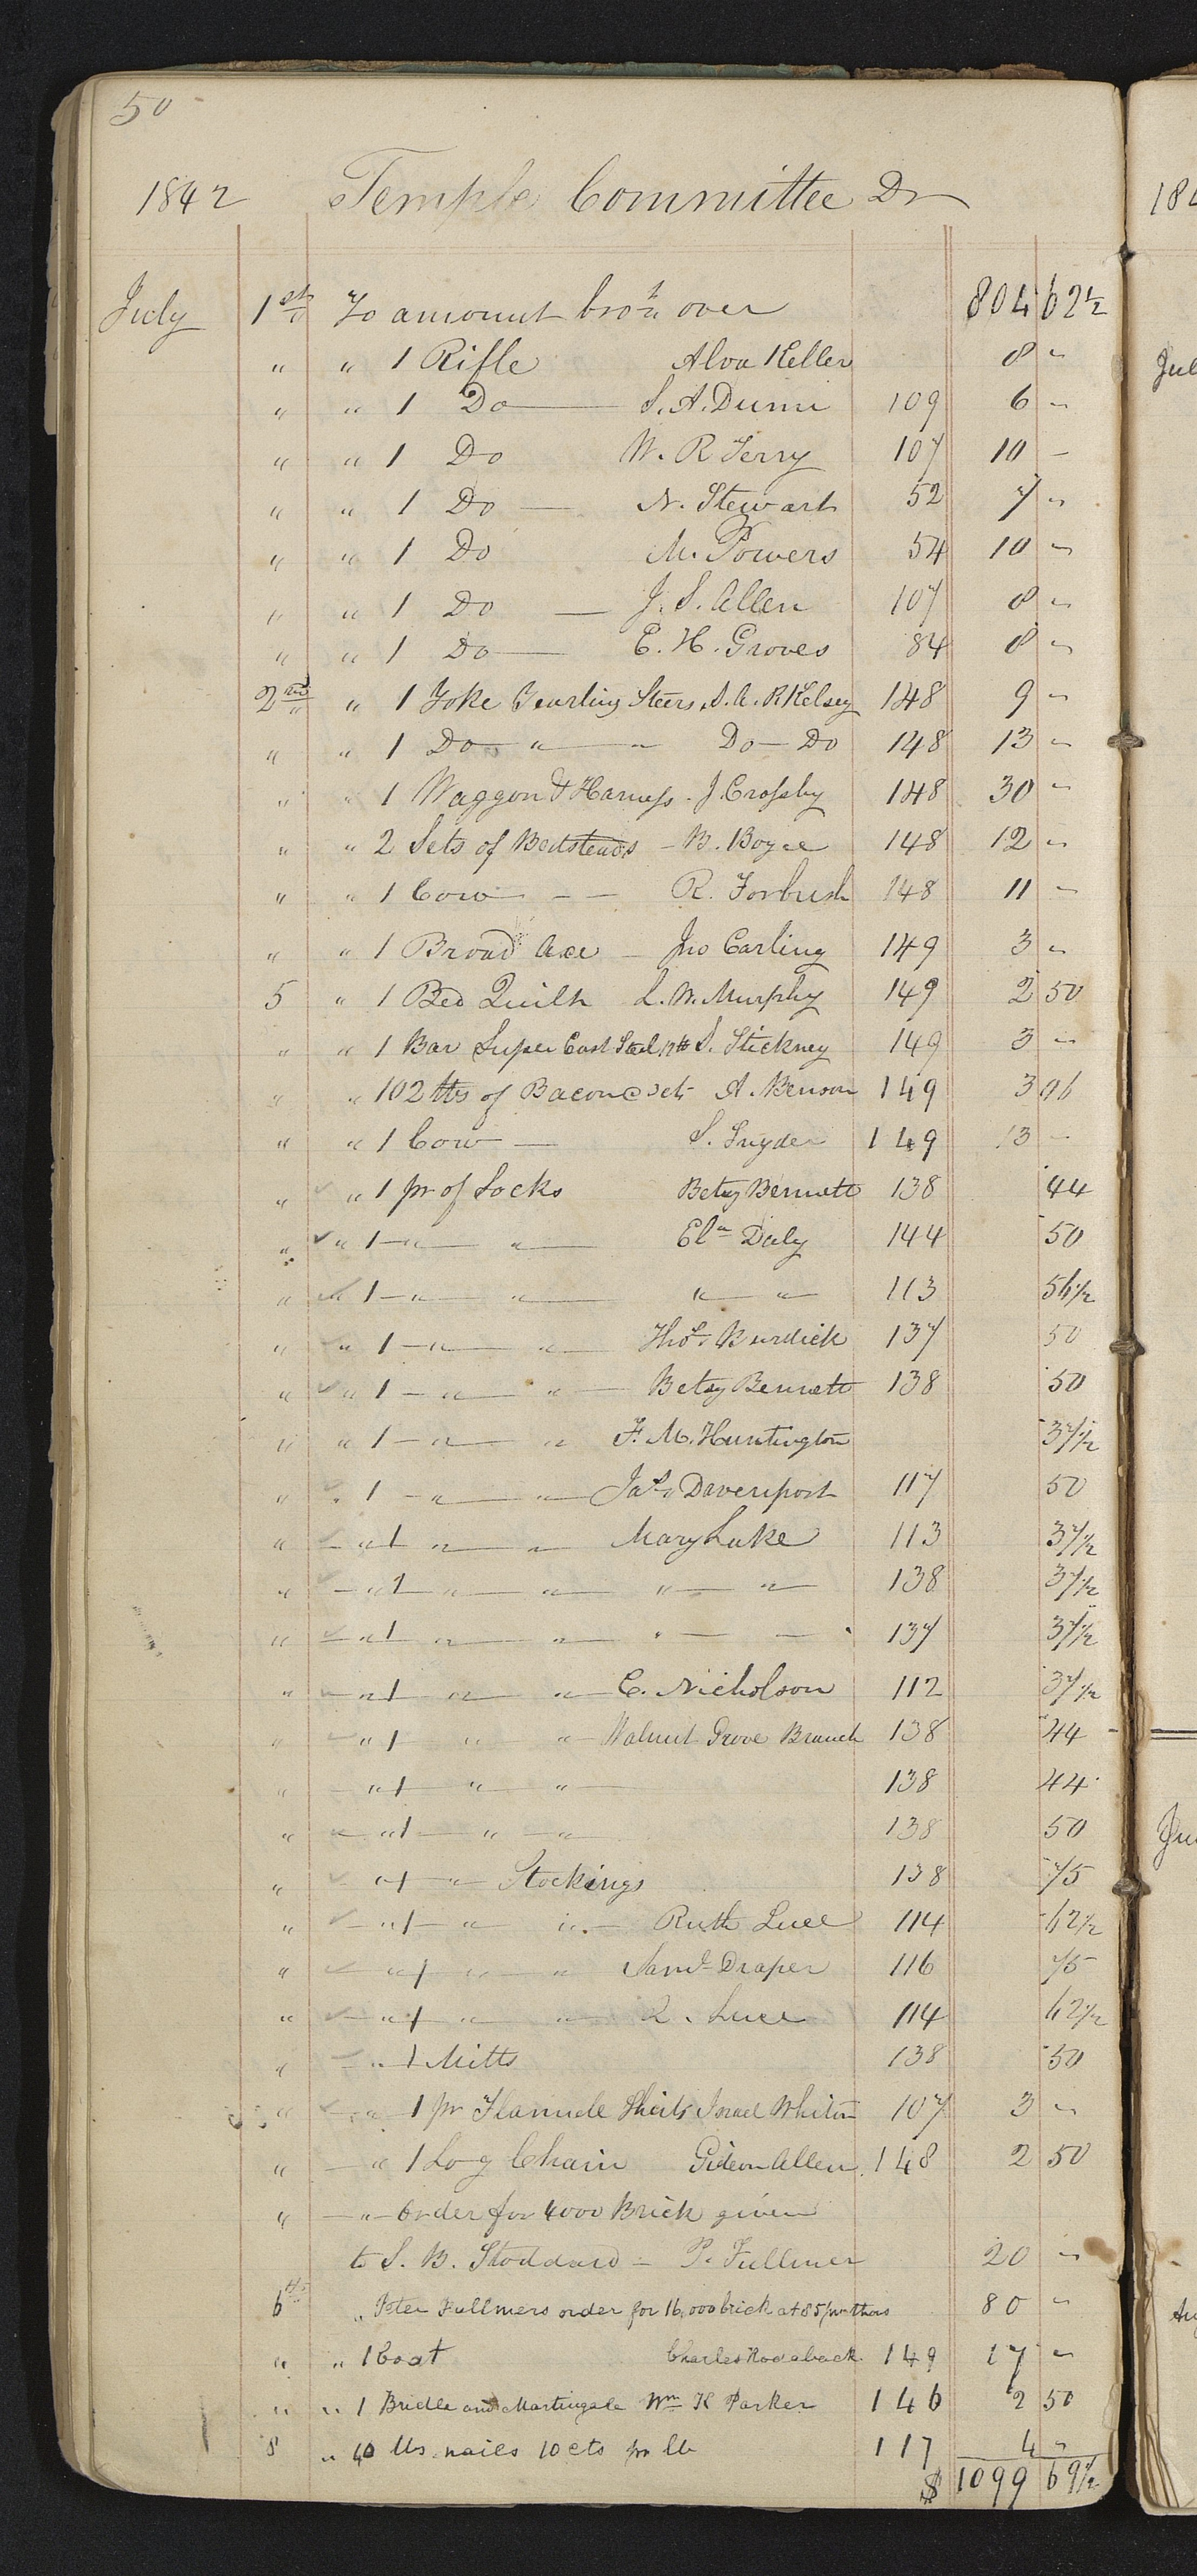 50
1842 Temple Committee Dr
July 1st To amount brot over 804 62½
" " 1 Rifle Alva Keller 8 "
" " 1 Do S. A. Dunn 109 6 "
" " 1 Do W. R Terry 107 10 -
" " 1 Do N. Stewart 52 7 "
" " 1 Do M. Powers 54 10 "
" " 1 Do J. S. Allen 107 8 "
" " 1 Do E. H. Groves 84 8 "
2nd " 1 Yoke Yearling Steers, S. A. P Kelsey 148 9 "
" " 1 Do " " Do Do 148 13 "
" " 1 Waggon & Harness. J. Crossby 148 30 "
" " 2 Sets of Bedsteads B. Boyce 148 12 "
" " 1 Cow R. Forbush 148 11 "
" " 1 Broad Axe Jno Carling 149 3 "
5 " 1 Bed Quilt L. W. Murphy 149 2 50
" " 1 Bar Super Cast Steel 12 lb S. Stickney 149 3 "
" " 102 lbs of Bacon @ 3 cts A. Benson 149 3 06
" " 1 Cow S. Snyder 149 13 -
" " 1 pr of Socks Betsy Bennett 138 44
" " 1 " " Ela Daly 144 50
" " 1 " " " " 113 56½
" " 1 " " Thos. Burdick 137 50
" " 1 " " Betsy Bennett 138 50
" " 1 " " F. M. Huntington 37½
" " 1 " " Jas. Davenport 117 50
" " 1 " " Mary Luke 113 37½
" " 1 " " " " 138 37½
" " 1 " " " " 137 37½
" " 1 " " C. Nicholson 112 37½
" " 1 " " Walnut Grove Branch 138 44
" " 1 " " 138 44
" " 1 " " 138 50
" " 1 " Stockings 138 75
" " 1 " " Ruth Luce 114 62½
" " 1 " " Saml Draper 116 75
" " 1 " " R. Luce 114 62½
" " 1 Mitts 138 50
" " 1 pr Flannele Sheets Israel Whiton 107 3 "
" " 1 Log Chain Gideon Allen 148 2 50
" " Order for 4000 Brick given
to S. B. Stoddard - P. Fullmer 20 "
6th " Peter Fullmers order for 16,000 brick at $5 pr thous 80 "
" " 1 Coat Charles Rodaback 149 17 "
" " 1 Bridle and Martingale Wm K Parker 146 2 50
8 " 40 lbs nailes 10 cts pr lb 117 4 "
$ 1099 69½